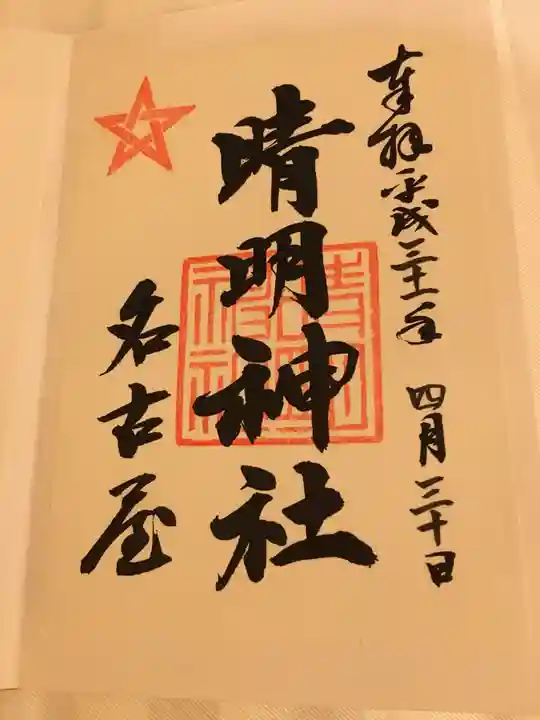 奉拝 平成三十一年 四月三十日
晴明神社
名古屋
晴明
神社